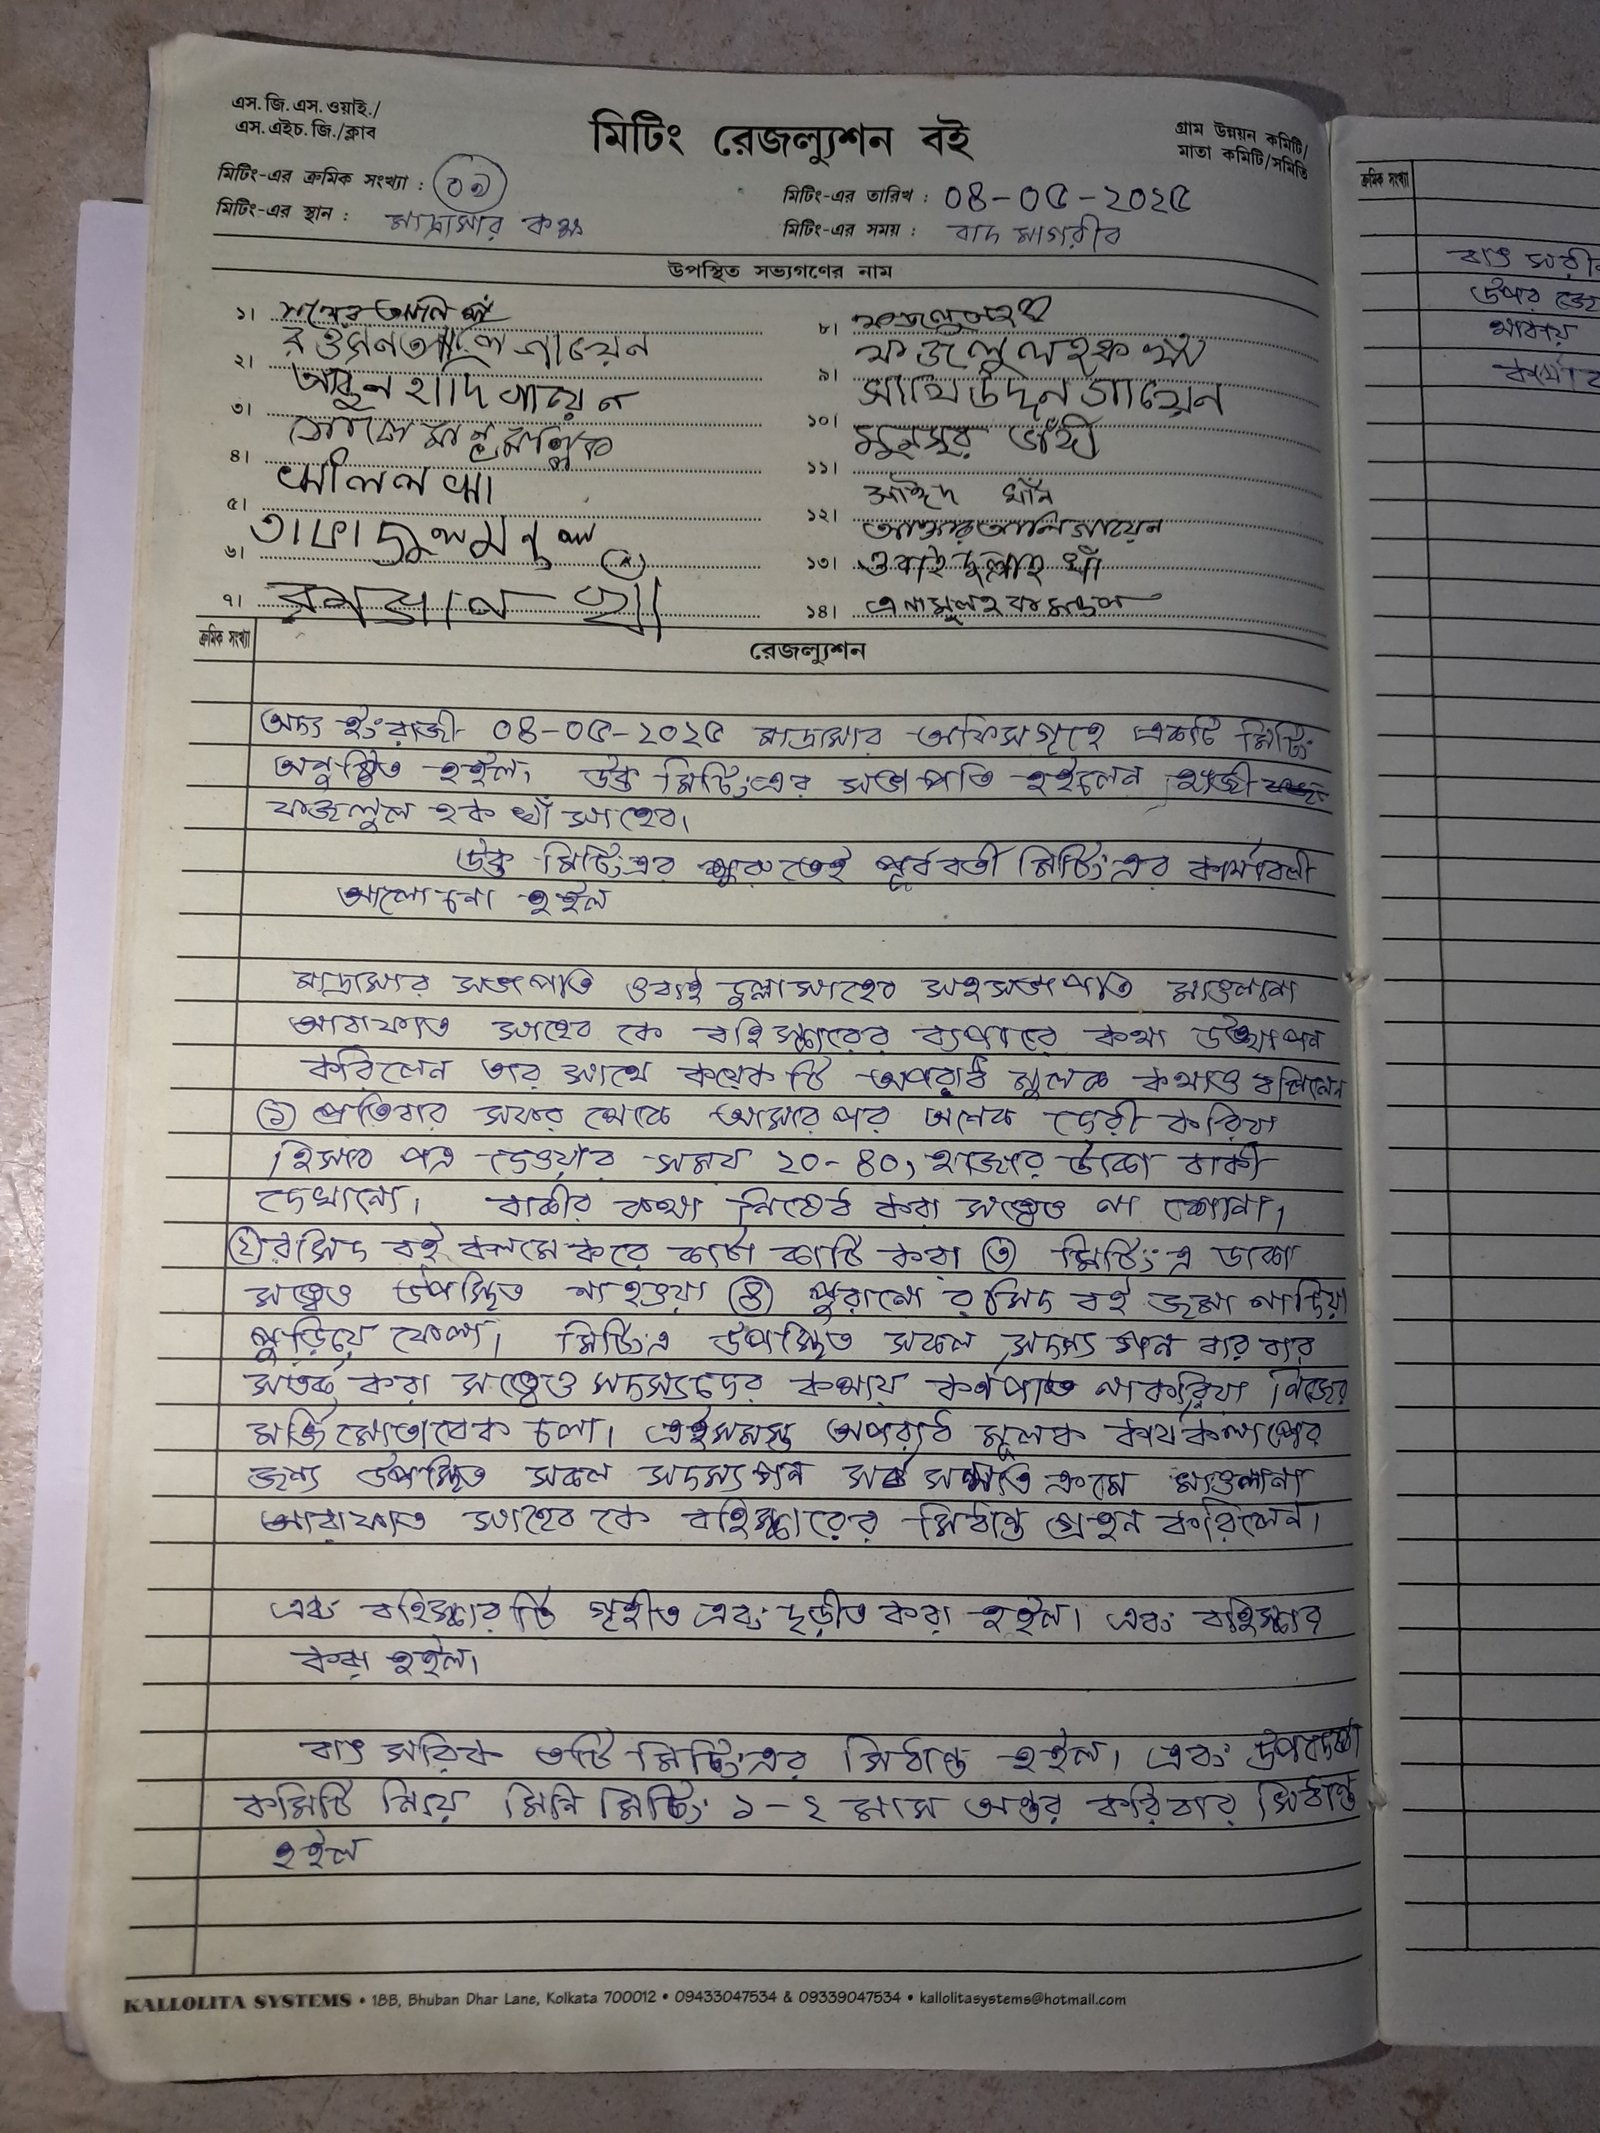 এস. জি. এস. ওয়াই./
এস. এইচ. জি./ক্লাব
মিটিং রেজল্যুশন বই
গ্রাম উন্নয়ন কমিটি/
মাতা কমিটি/সমিতি
মিটিং-এর ক্রমিক সংখ্যা :
মিটিং-এর তারিখ : ০৪-০৫-২০২৫
মিটিং-এর স্থান : মাদ্রাসার কক্ষ
মিটিং-এর সময় : বাদ মাগরীব
উপস্থিত সভ্যগণের নাম
১।
রওসন আলি গায়েন
২।
আবুল হাদি গায়েন
৩।
৪।
খালিল খা
৫।
৬।
৭। রমযান
৮।
ফজলুল হক খাঁ
৯।
গায়েন
১০।
১১।
সাঈদ খাঁন
১২।
আলি গায়েন
১৩। ওবাইদুল্লাহ খাঁ
১৪। এনামুল হক মন্ডল
ক্রমিক সংখ্যা
রেজল্যুশন
অদ্য ইংরাজী ০৪-০৫-২০২৫ মাদ্রাসার অফিসগৃহে একটি মিটিং
অনুষ্ঠিত হইল। উক্ত মিটিংএর সভাপতি হইলেন হাজী
ফজলুল হক খাঁ সাহেব।
উক্ত মিটিংএর শুরুতেই পূর্ববর্তী মিটিং এর কার্যাবলী
আলোচনা হইল
মাদ্রাসার সভাপতি ওবাইদুল্লা সাহেব সহসভাপতি মাওলানা
আরাফাত সাহেব কে বহিস্কারের ব্যাপারে কথা উত্থাপন
করিলেন তার সাথে কয়েকটি অপরাধ মুলক কথাও বলিলেন
① প্রতিবার সফর থেকে আসার পর অনেক দেরী করিয়া
হিসাব পত্র দেওয়ার সময় ২০-৪০, হাজার টাকা বাকী
দেখানো। বাকীর কথা নিষেধ করা সত্ত্বেও না শোনা।
② রসিদ বই কলমে করে কাটা কাটি করা ③ মিটিং এ ডাকা
সত্ত্বেও উপস্থিত না হওয়া ④ পুরানো রসিদ বই জমা না দিয়া
পুড়িয়ে ফেলা। মিটিংএ উপস্থিত সকল সদস্য গন বার বার
সতর্ক করা সত্ত্বেও সদস্যদের কথায় কর্নপাত না করিয়া নিজের
মর্জি মোতাবেক চলা। এইসমস্ত অপরাধ মূলক কার্যকলাপের
জন্য উপস্থিত সকল সদস্যগন সর্ব সম্মতি ক্রমে মাওলানা
আরাফাত সাহেব কে বহিস্কারের সিধান্ত গ্রেহন করিলেন।
এবং বহিস্কারটি গৃহীত এবং দৃড়ীত করা হইল। এবং বহিস্কার
করা হইল।
বাৎ সরিক ৩টি মিটিংএর সিধান্ত হইল। এবং উপদেষ্টা
কমিটি নিয়ে মিনি মিটিং ১-২ মাস অন্তর করিবার সিধান্ত
হইল
KALLOLITA SYSTEMS • 18B, Bhuban Dhar Lane, Kolkata 700012 • 09433047534 & 09339047534 • kallolitasystems@hotmail.com
ক্রমিক সংখ্যা